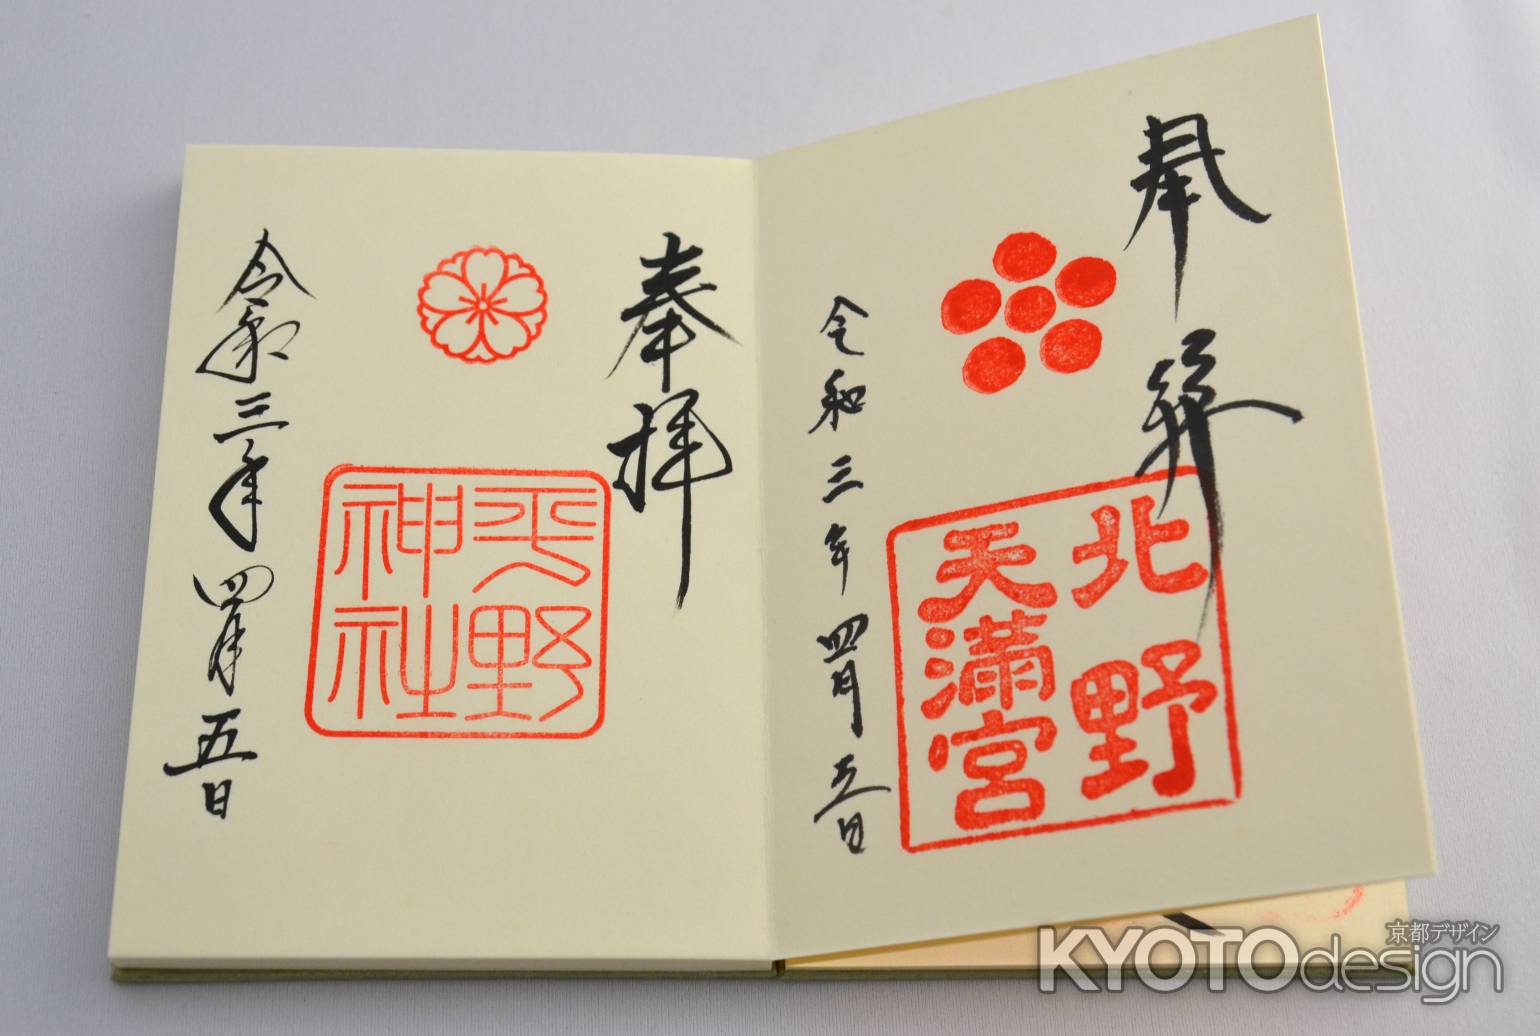 奉拝
北野
天満宮
令和三年四月五日
奉拝
平野
神社
令和三年四月五日
京都デザイン
KYOTOdesign